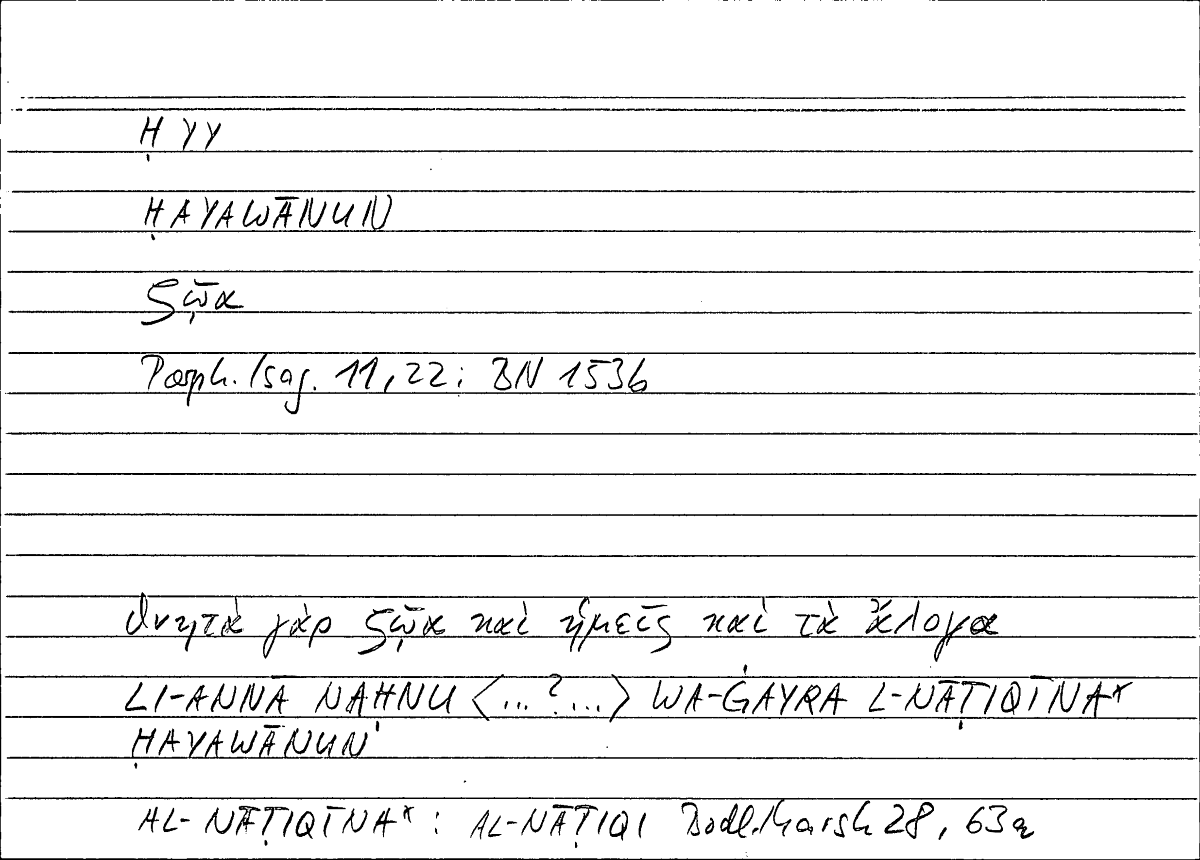 Ḥ YY
ḤAYAWĀNUN
ζῷα
Porph. Isag. 11,22; BN 153b
θνητὰ γὰρ ζῷα καὶ ἡμεῖς καὶ τὰ ἄλογα
LI-ANNĀ NAḤNU <...?...> WA-ĠAYRA L-NĀṬIQĪNA*
ḤAYAWĀNUN
AL-NĀṬIQĪNA* : AL-NĀṬIQI Bodl. Marsh 28, 63a